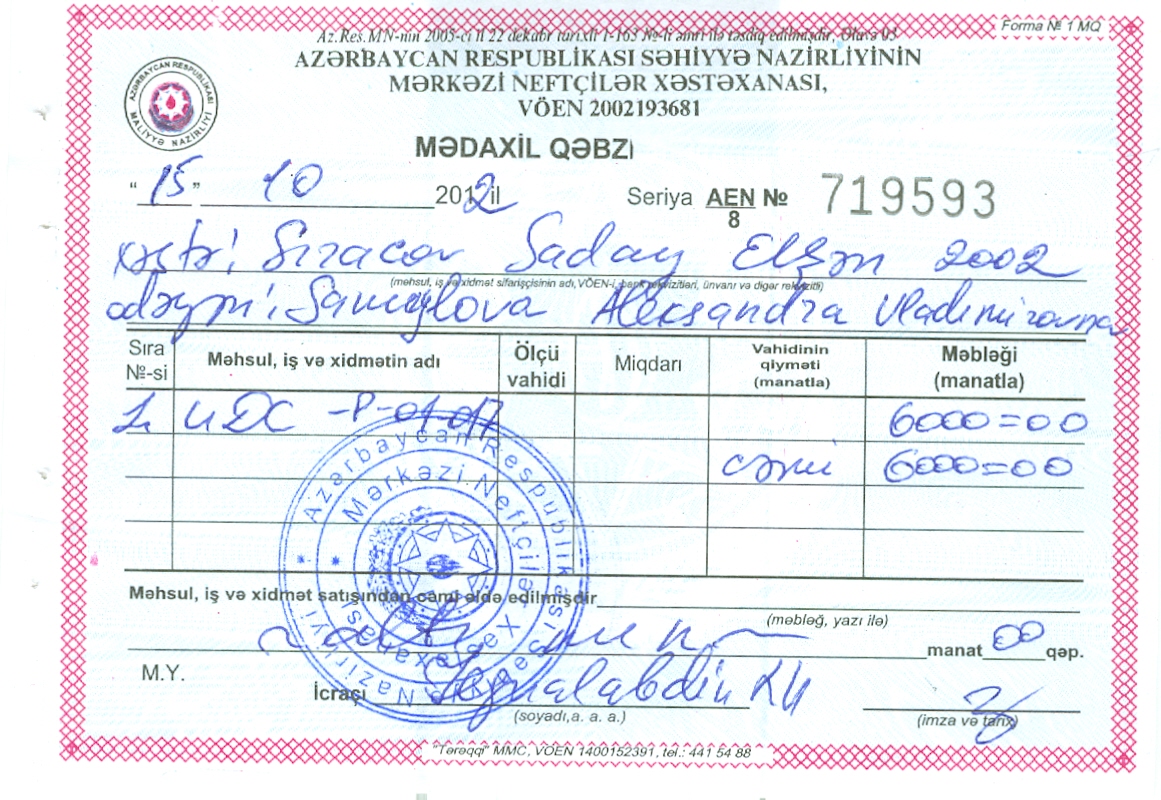 Forma № 1 MQ
Az.Res.MN-nin 2005-ci il 22 dekabr tarixli I-163 №-li əmri ilə təsdiq edilmişdir, Əlavə 03
AZƏRBAYCAN RESPUBLİKASI SƏHİYYƏ NAZİRLİYİNİN
MƏRKƏZİ NEFTÇİLƏR XƏSTƏXANASI,
VÖEN 2002193681
AZƏRBAYCAN RESPUBLİKASI MALİYYƏ NAZİRLİYİ
MƏDAXİL QƏBZİ
"15" 10 2012 il Seriya AEN/8 № 719593
xəstə: Siracov Saday Elşən 2002
(məhsul, iş və xidmət sifarişçisinin adı, VÖEN-i, bank rekvizitləri, ünvanı və digər rekviziti)
ödəyən: Samoylova Aleksandra Vladimirovna
Sıra №-si Məhsul, iş və xidmətin adı Ölçü vahidi Miqdarı Vahidinin qiyməti (manatla) Məbləği (manatla)
1. UDC -P-01-017 6000=00
cəmi 6000=00
Azərbaycan Respublikası Səhiyyə Nazirliyi
Mərkəzi Neftçilər Xəstəxanası
Məhsul, iş və xidmət satışından cəmi əldə edilmişdir
(məbləğ, yazı ilə)
altı min manat 00 qəp.
M.Y.
İcraçı
(soyadı,a. a. a.) (imza və tarix)
"Tərəqqi" MMC, VÖEN 1400152391, tel.: 441 54 88